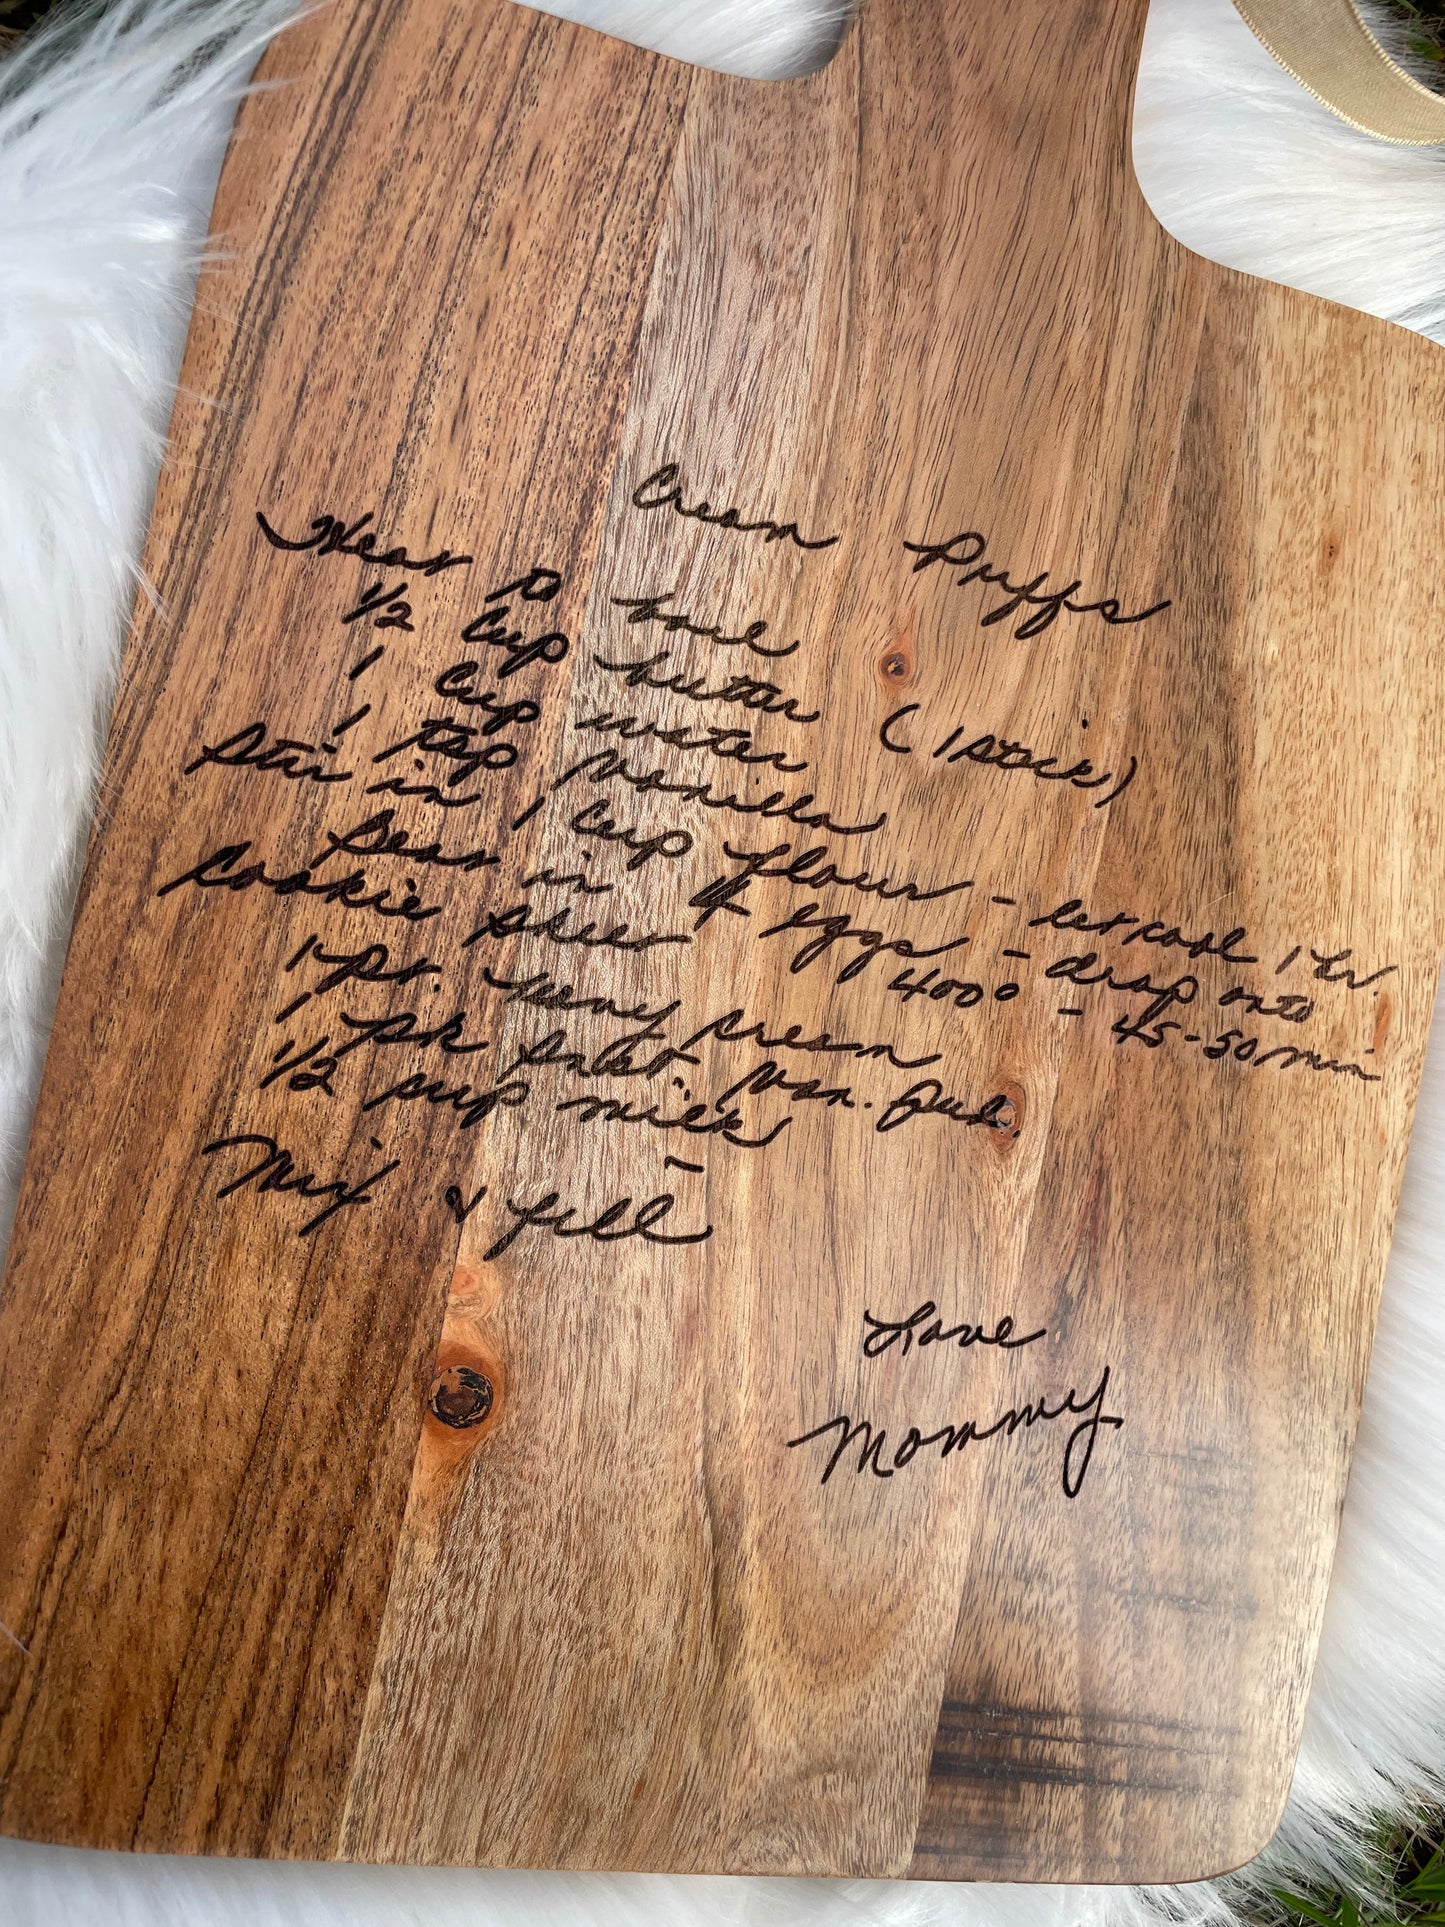 Cream Puffs
Heat to boil
1/2 cup butter (1 stick)
1 cup water
1 tsp vanilla
Stir in 1 cup flour - let cool 1 hr.
Beat in 4 eggs - drop onto
cookie sheet 400° - 45-50 min
1 pt. heavy cream
1 pk inst. van. pud.
1/2 cup milk
Mix & fill -
Love
Mommy